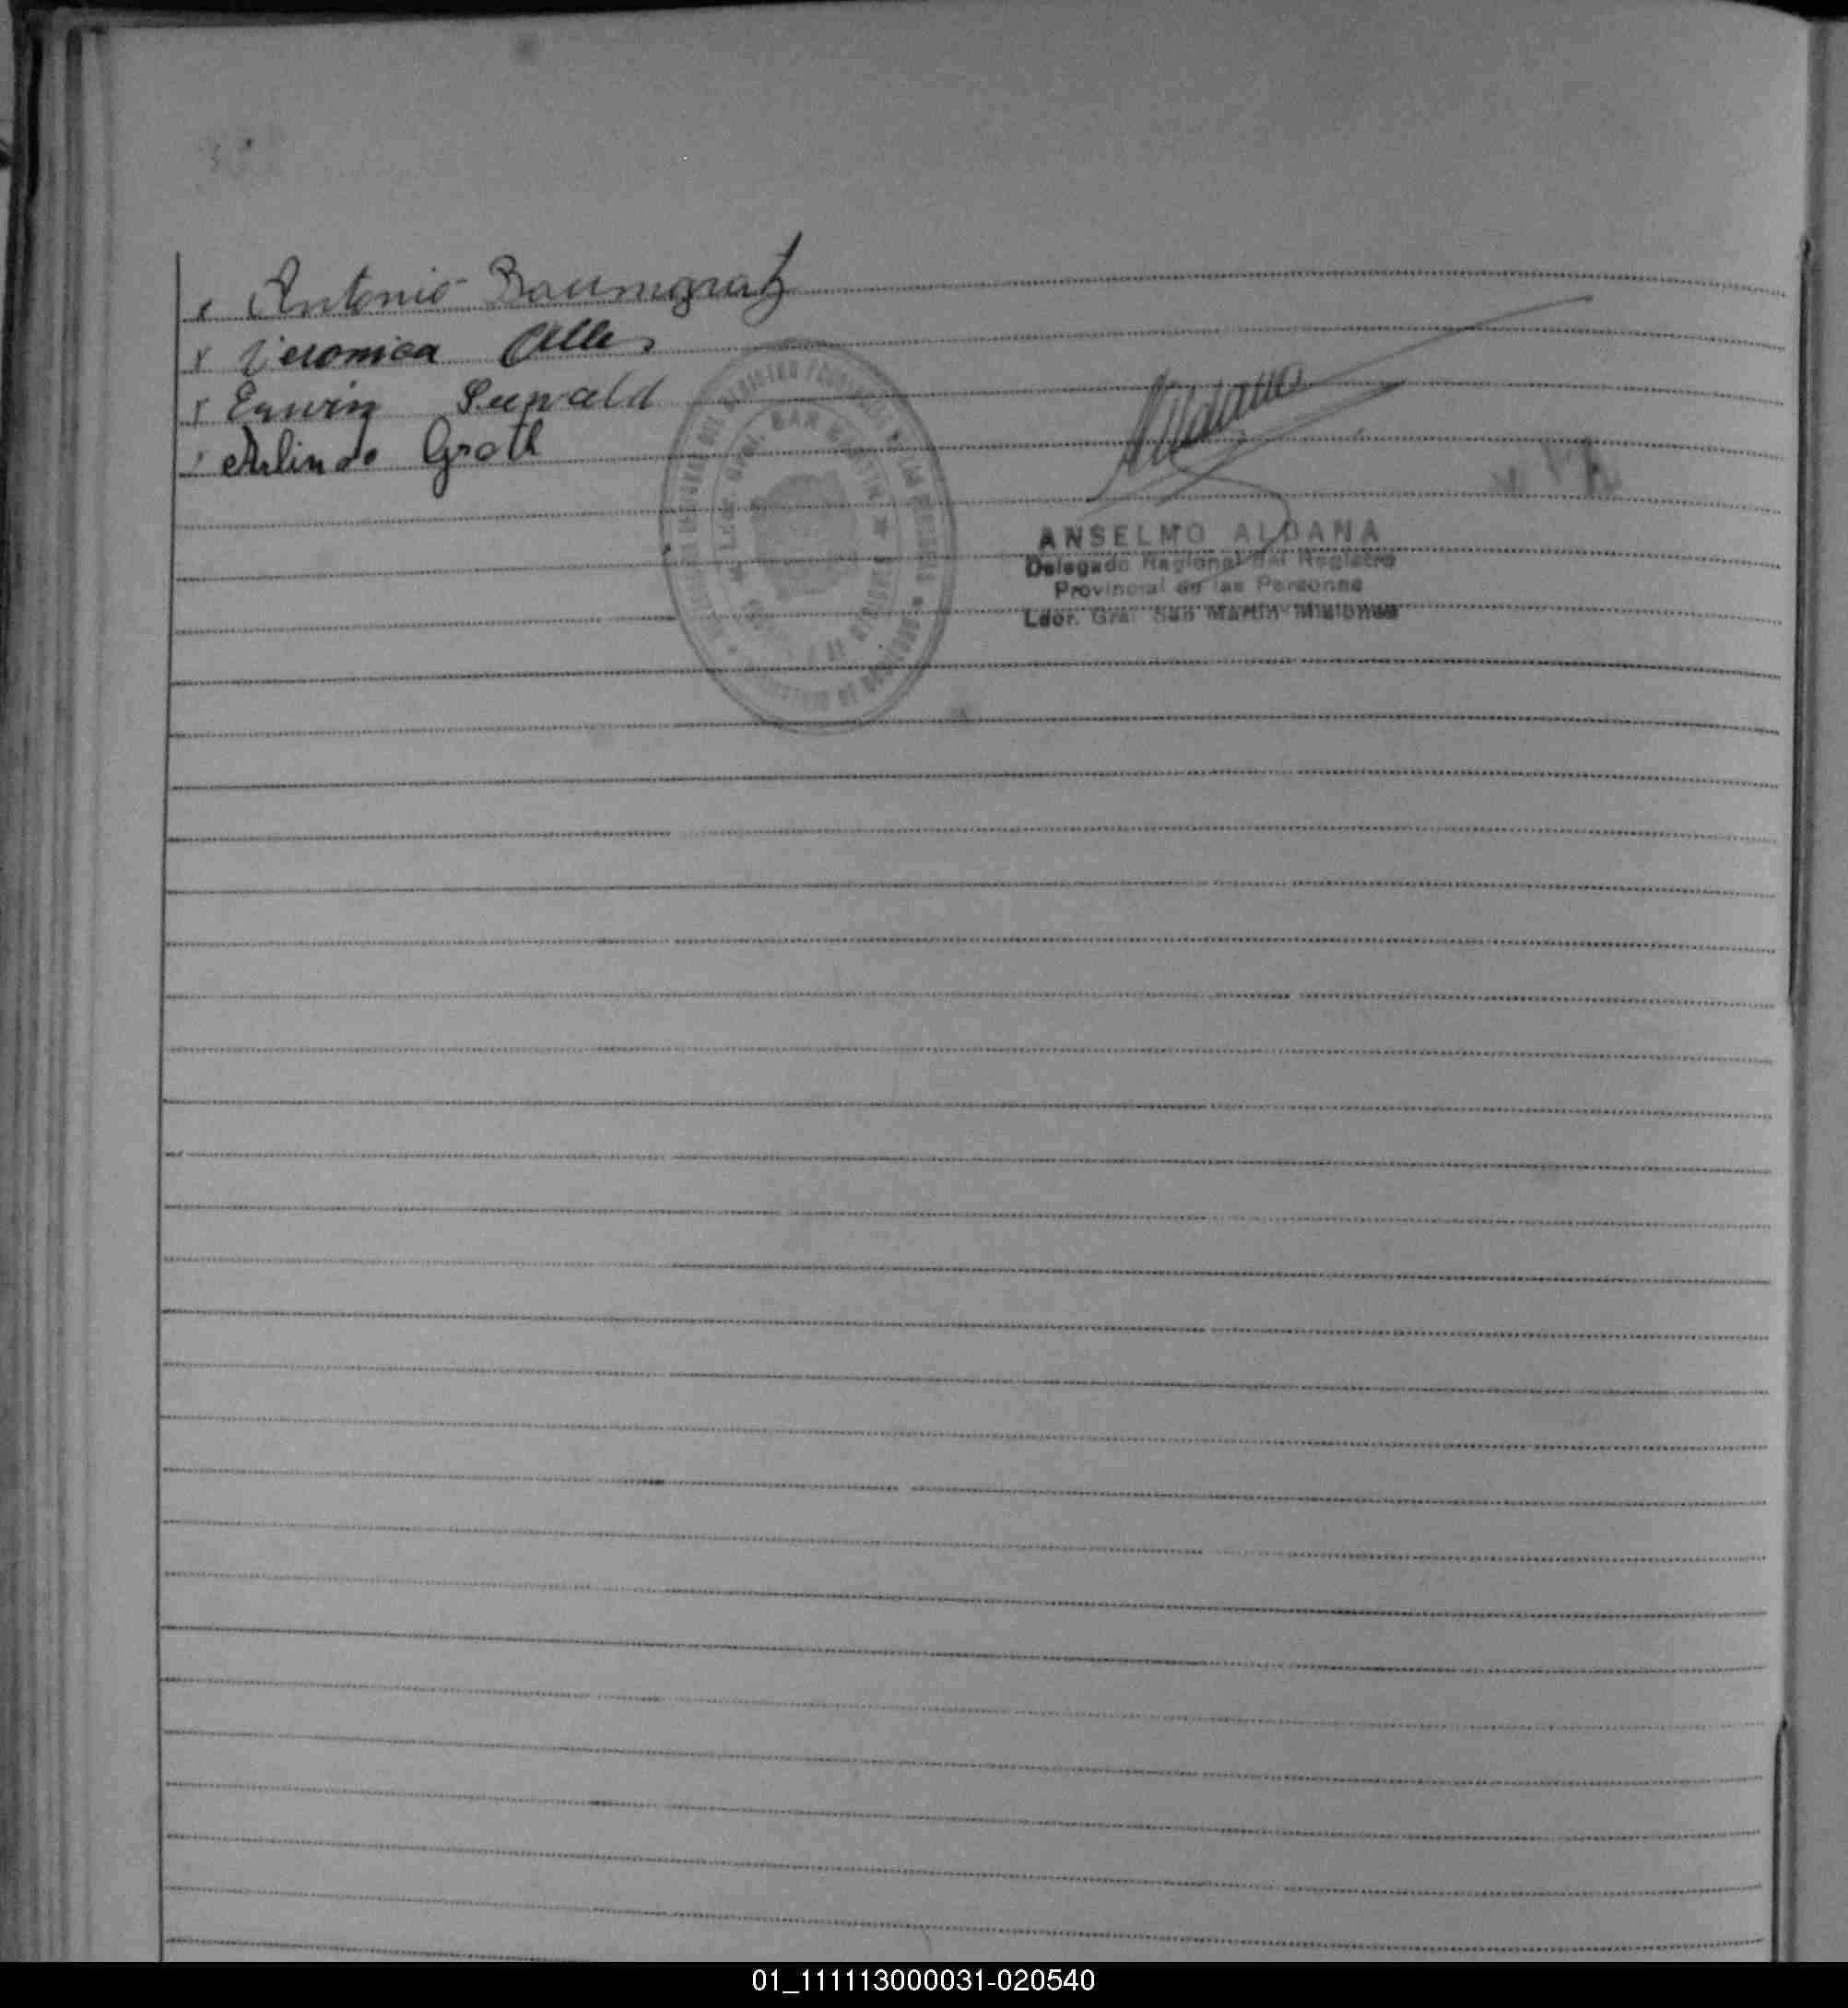 x Antonio Baumgratz
x Veronica Alles
x Erwin
Arlindo Groth
Aldana
SAN MARTIN
ANSELMO ALDANA
Delegado Regional del Registro
Provincial de las Personas
Ldor. Gral San Martin Misiones
01_111113000031-020540